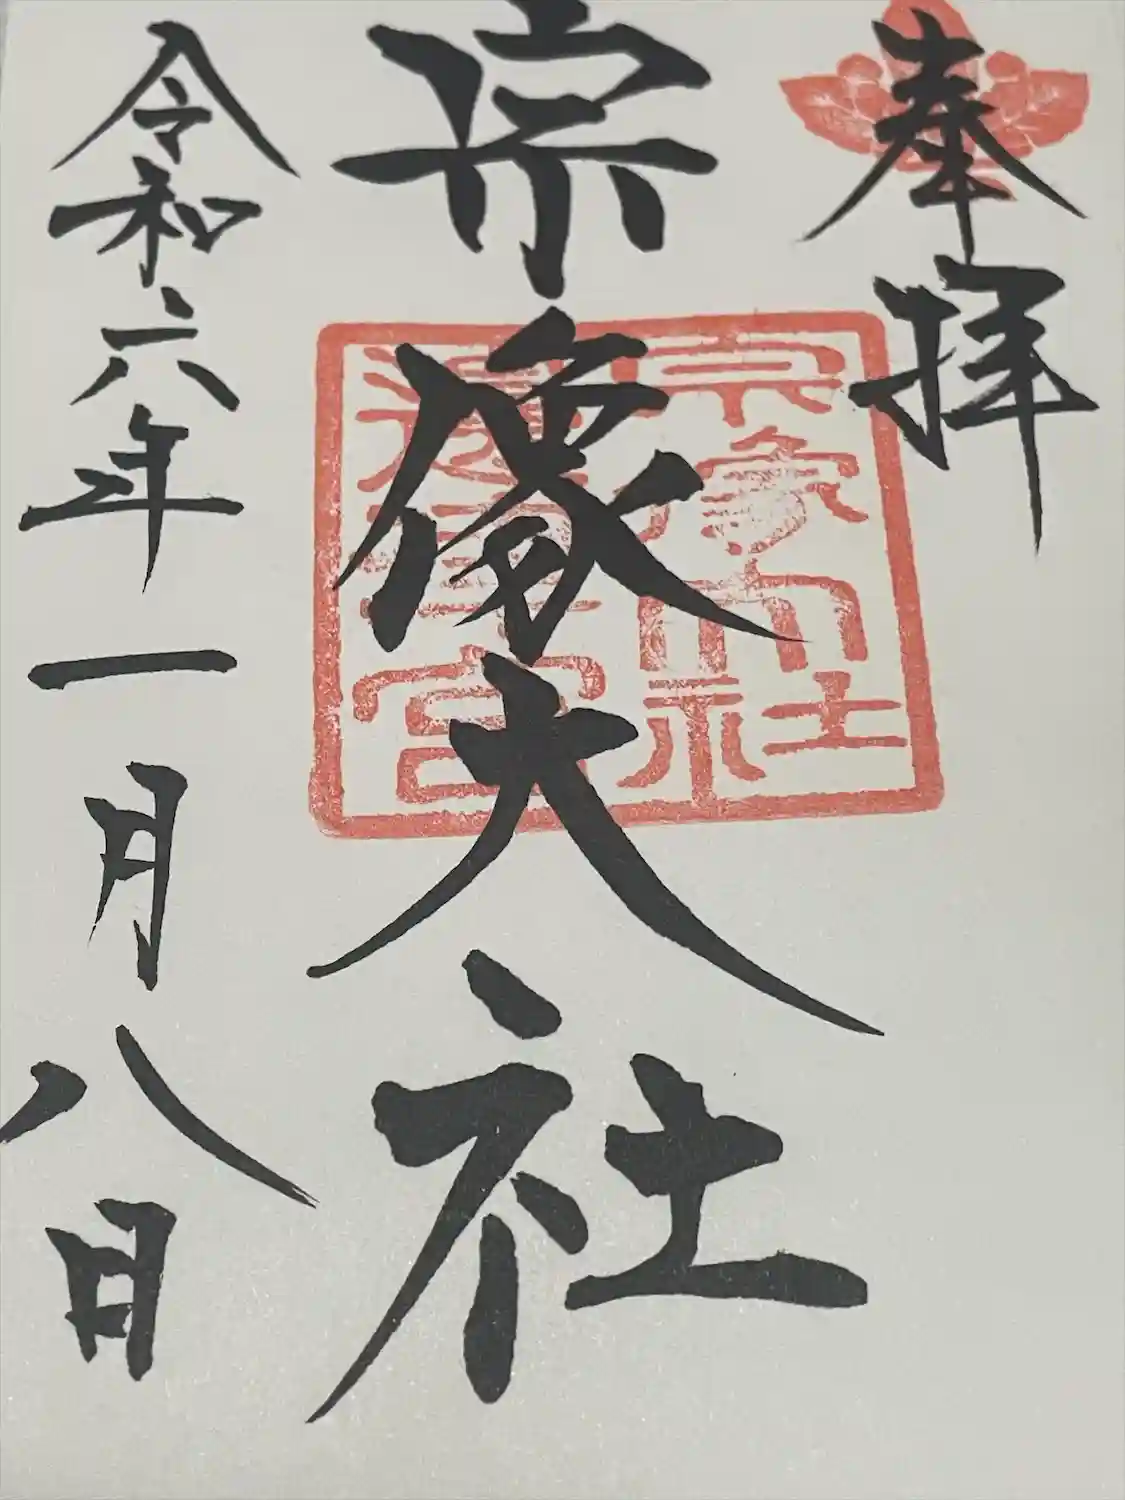 奉拝
宗像大社
令和六年一月八日
宗像大社
邊津宮